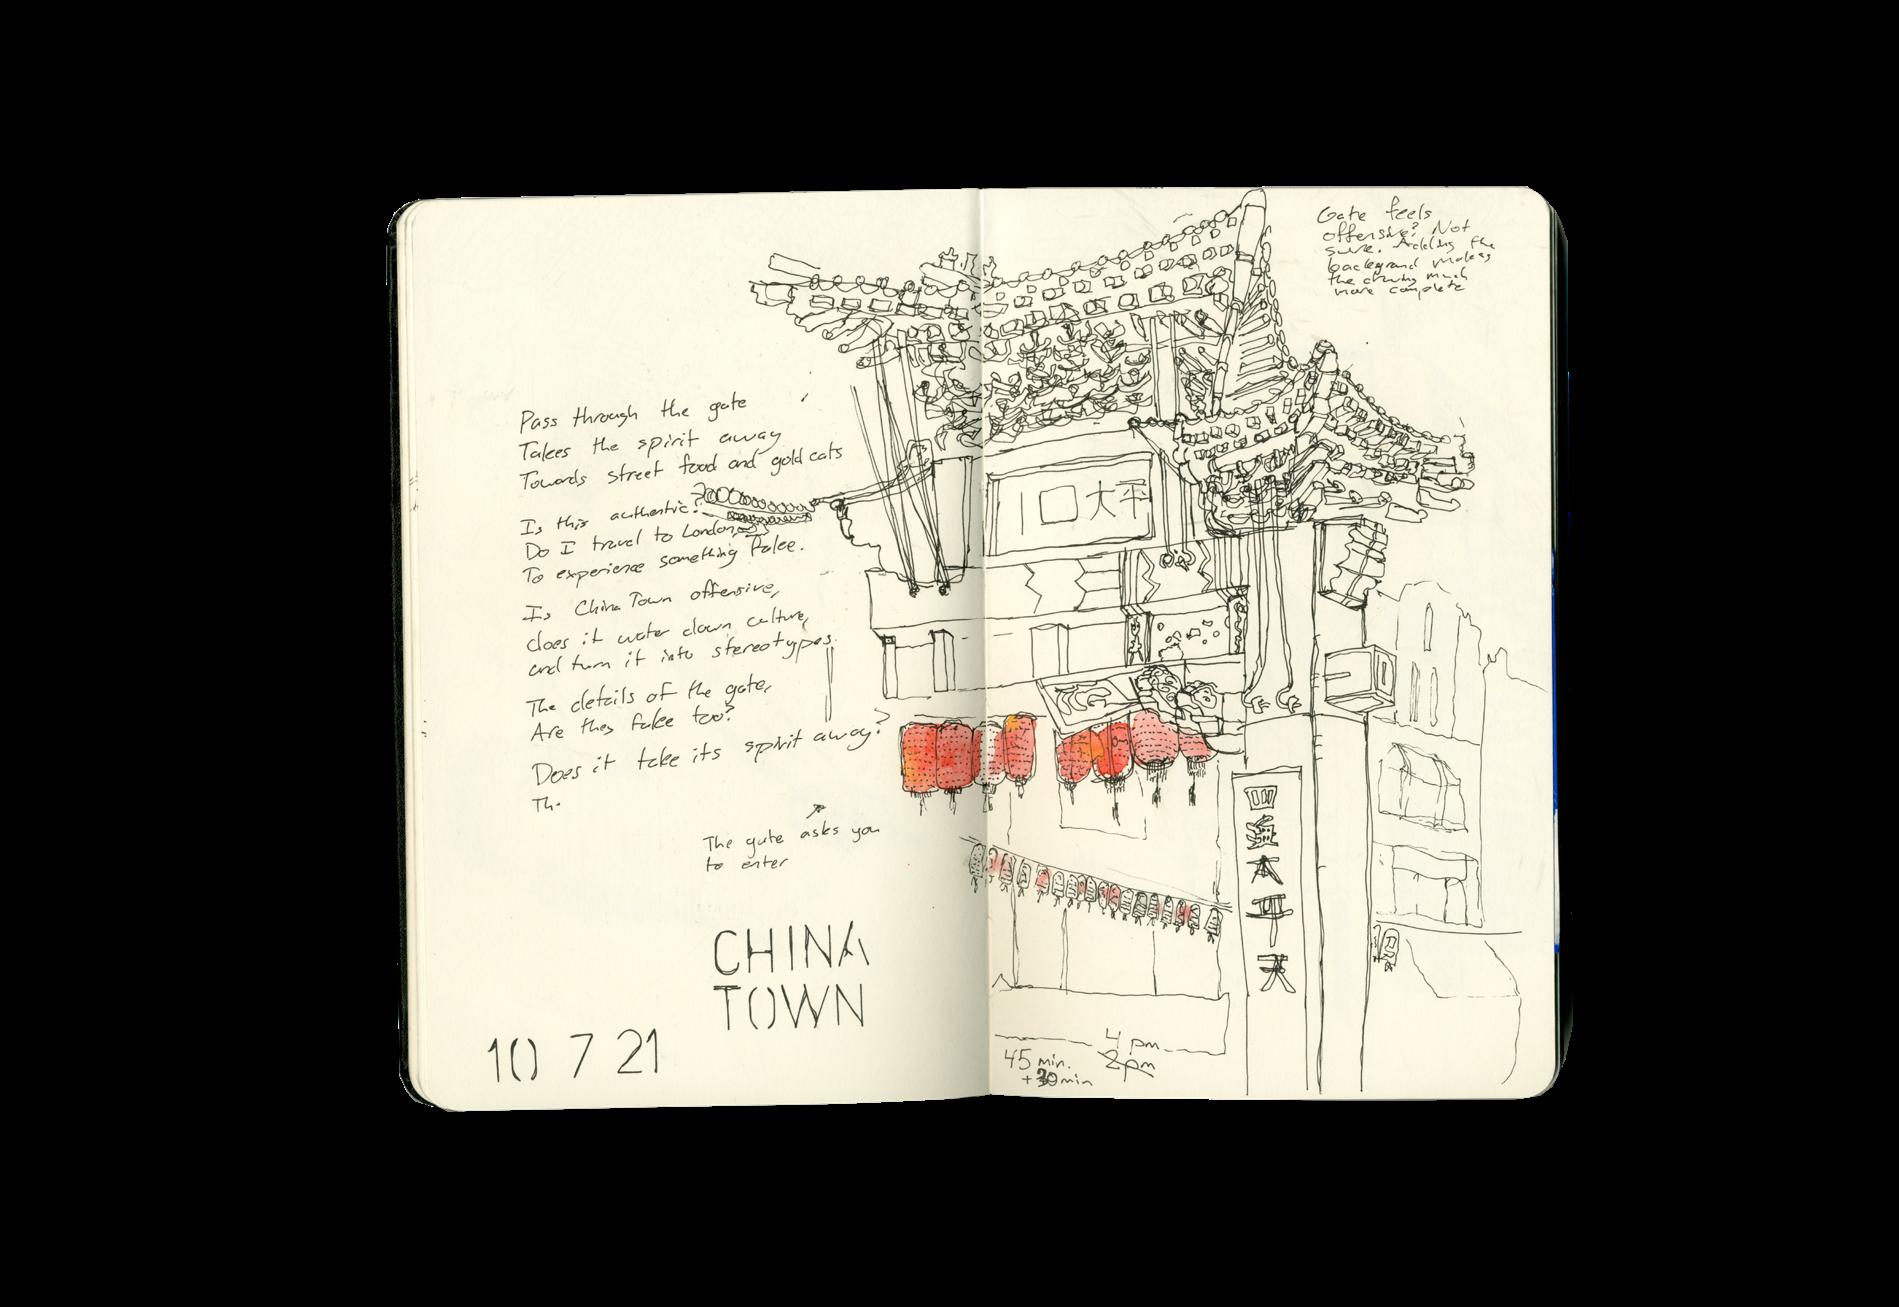 Pass through the gate
Takes the spirit away
Towards street food and gold cats
Is this authentic?
Do I travel to London,
To experience something fake.
Is China Town offensive,
does it water down culture,
and turn it into stereotypes.
The details of the gate,
Are they fake too?
Does it take its spirit away?
Th.
The gate asks you
to enter
CHINA
TOWN
10 7 21
Gate feels
offensive? Not
sure. Adding the
background makes
the drawing much
more complete
口大平
四
本
平
天
4 pm
45 min. 2pm
+30min